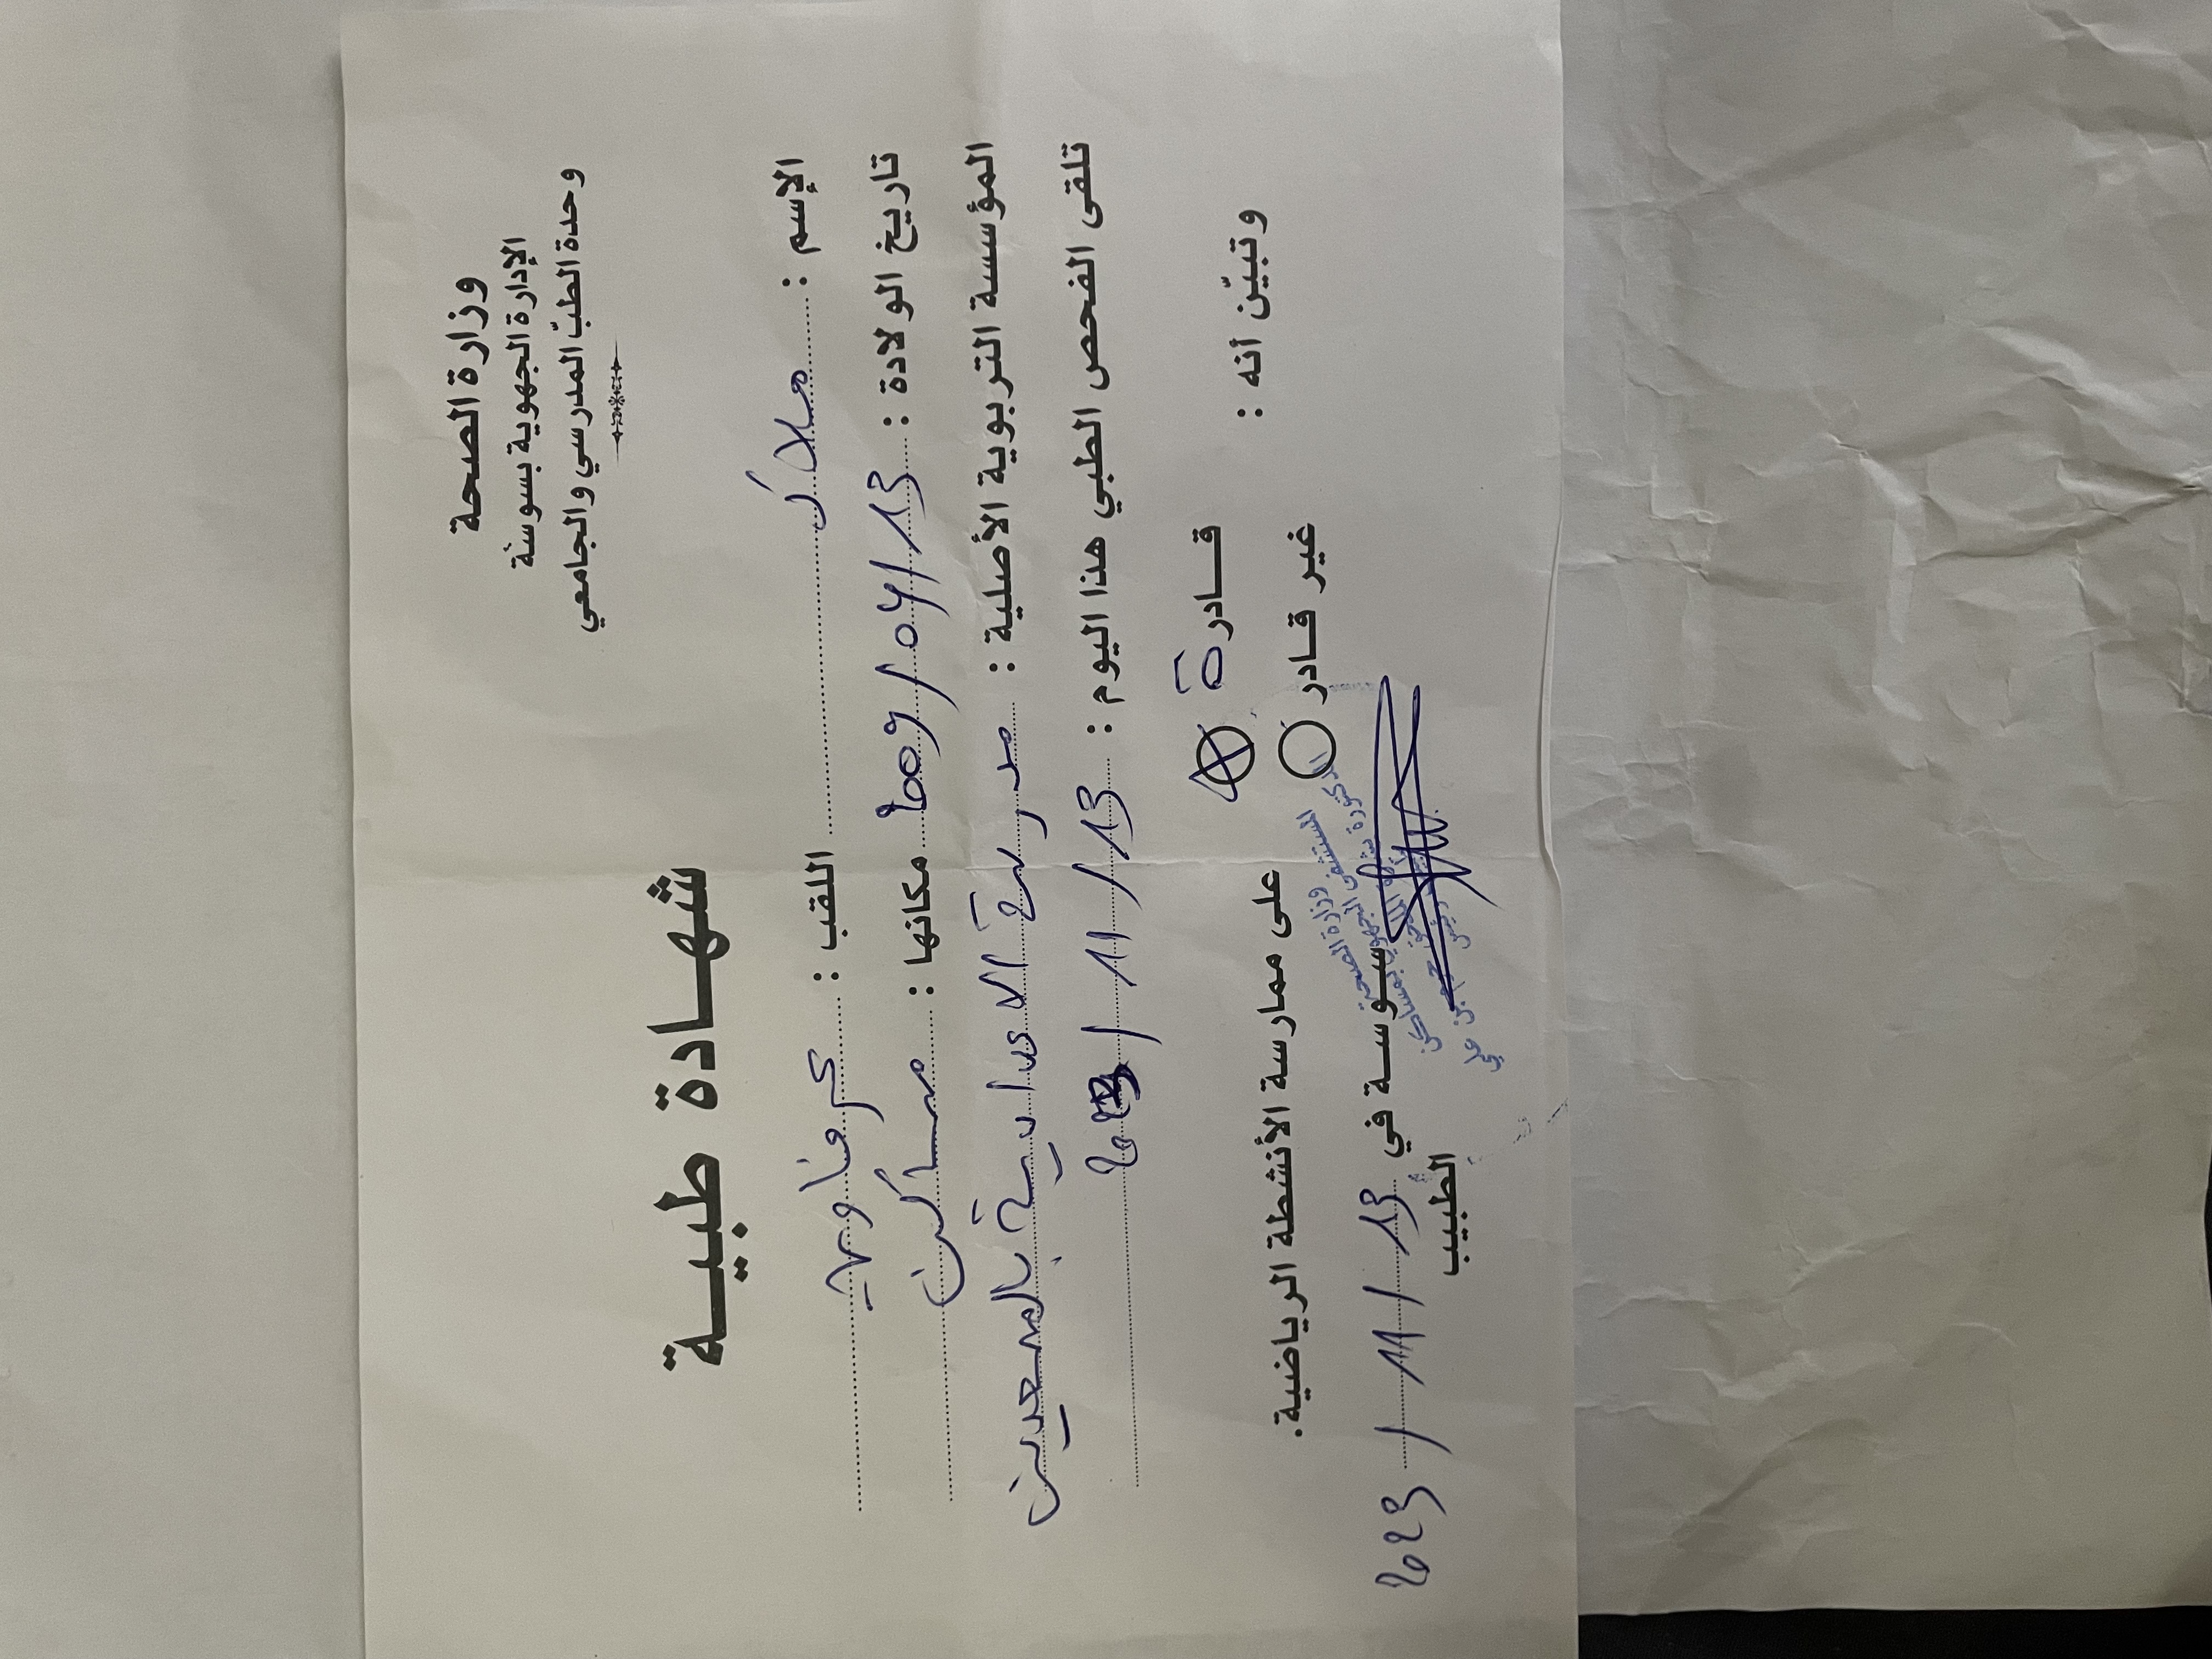 وزارة الصحة
الإدارة الجهوية بسوسة
وحدة الطبّ المدرسي والجامعي
شهادة طبية
الإسم : ملاك اللقب :
تاريخ الولادة : 13/04/2009 مكانها : مساكن
المؤسسة التربوية الأصلية : مدرسة الاعدادية بالمعدين
تلقى الفحص الطبي هذا اليوم : 13/11/2023
وتبيّن أنه :
قادرة
غير قادر
على ممارسة الأنشطة الرياضية.
سوسة في 13/11/2023
الطبيب
وزارة الصحة
المستشفى الجهوي بمساكن
الدكتورة